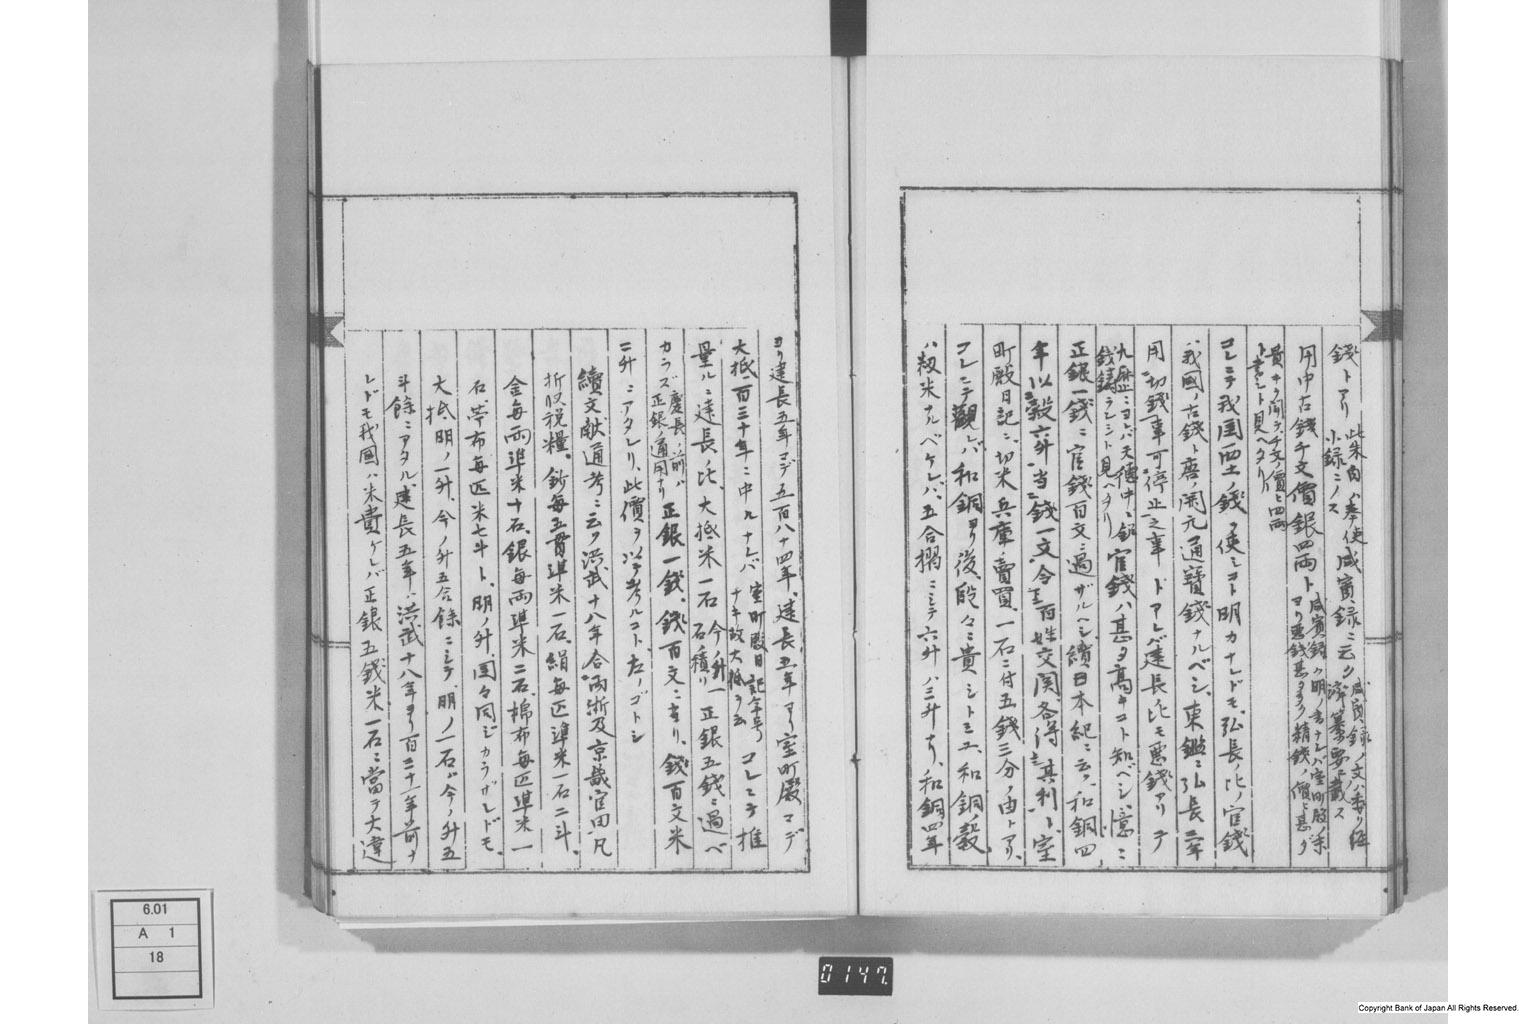 錢トアリ 此朱自ハ奉使咸賓録ニ云ク 咸賓録ノ文ハ委ク經
小録ニノス 濟纂要ニ載ス
用中古錢千文價銀四両ト 咸賓録ハ明ノ書ナレバ室町殿ノ季
ヨリ悪銭甚多ク精錢ノ價ヒ甚タ
貴キヲ聞テ千文ノ價ヒ四両
ト書シト見ヘタリ
コレニテ我国四土ノ錢ヲ使シコト明カナレドモ弘長ノ比ノ官錢
ハ我國ノ古錢ト唐ノ開元通寶錢ナルベシ、東鑑ニ弘長三年
用切錢事可停止之事トアレバ建長比モ悪錢アリテ
九歴ニヨレバ天徳中ニ銀
錢鑄ラレシト見ヘタリ 官錢ハ甚タ高キコト知ベシ、憶ニ
正銀一錢ニ官錢百文ニ過ザルヘシ、續日本紀ニ云ク和銅四
年以穀六升当錢一文令百姓交関各得其利ト、室
町殿日記ニ切米兵庫賣買、一石ニ付五錢三分ノ由トアリ、
コレニテ觀レバ和銅ヨリ後、段々ニ貴シトミユ、和銅ノ穀
ハ籾米ナルベケレバ、五合摺ニシテ六升ハ三升ナリ、和銅四年
ヨリ建長五年マデ五百八十四年、建長五年ヨリ室町殿マデ
大抵百三十年ニ中ルナレバ 室町殿日記年号
ナキ故大抵ヲ云 コレニテ推
量ルニ建長ノ比、大抵米一石 今ノ升一
石ノ積リ 正銀五錢ニ過ベ
カラズ 慶長ノ前ハ
正銀ノ通用ナリ 正銀一錢、錢百文ニ当リ、錢百文米
二升ニアタレリ、此價ヲ以テ考ルコト、左ノゴトシ
續文献通考ニ云ク洪武十八年令両浙及京畿官田凡
折収税糧、鈔毎五貫準米一石、絹毎匹準米一石二斗、
金毎両準米十石、銀毎両準米二石、棉布毎匹準米一
石、苧布毎匹米七斗ト、明ノ升、国々同ジカラザレドモ、
大抵明ノ一升、今ノ升五合餘ニシテ、明ノ一石ガ今ノ升五
斗餘ニアタル、建長五年ハ洪武十八年ヨリ百三十一年前ナ
レドモ我國ハ米貴ケレバ正銀五錢米一石ニ當テ大違
6.01
A 1
18
0147.
Copyright Bank of Japan All Rights Reserved.